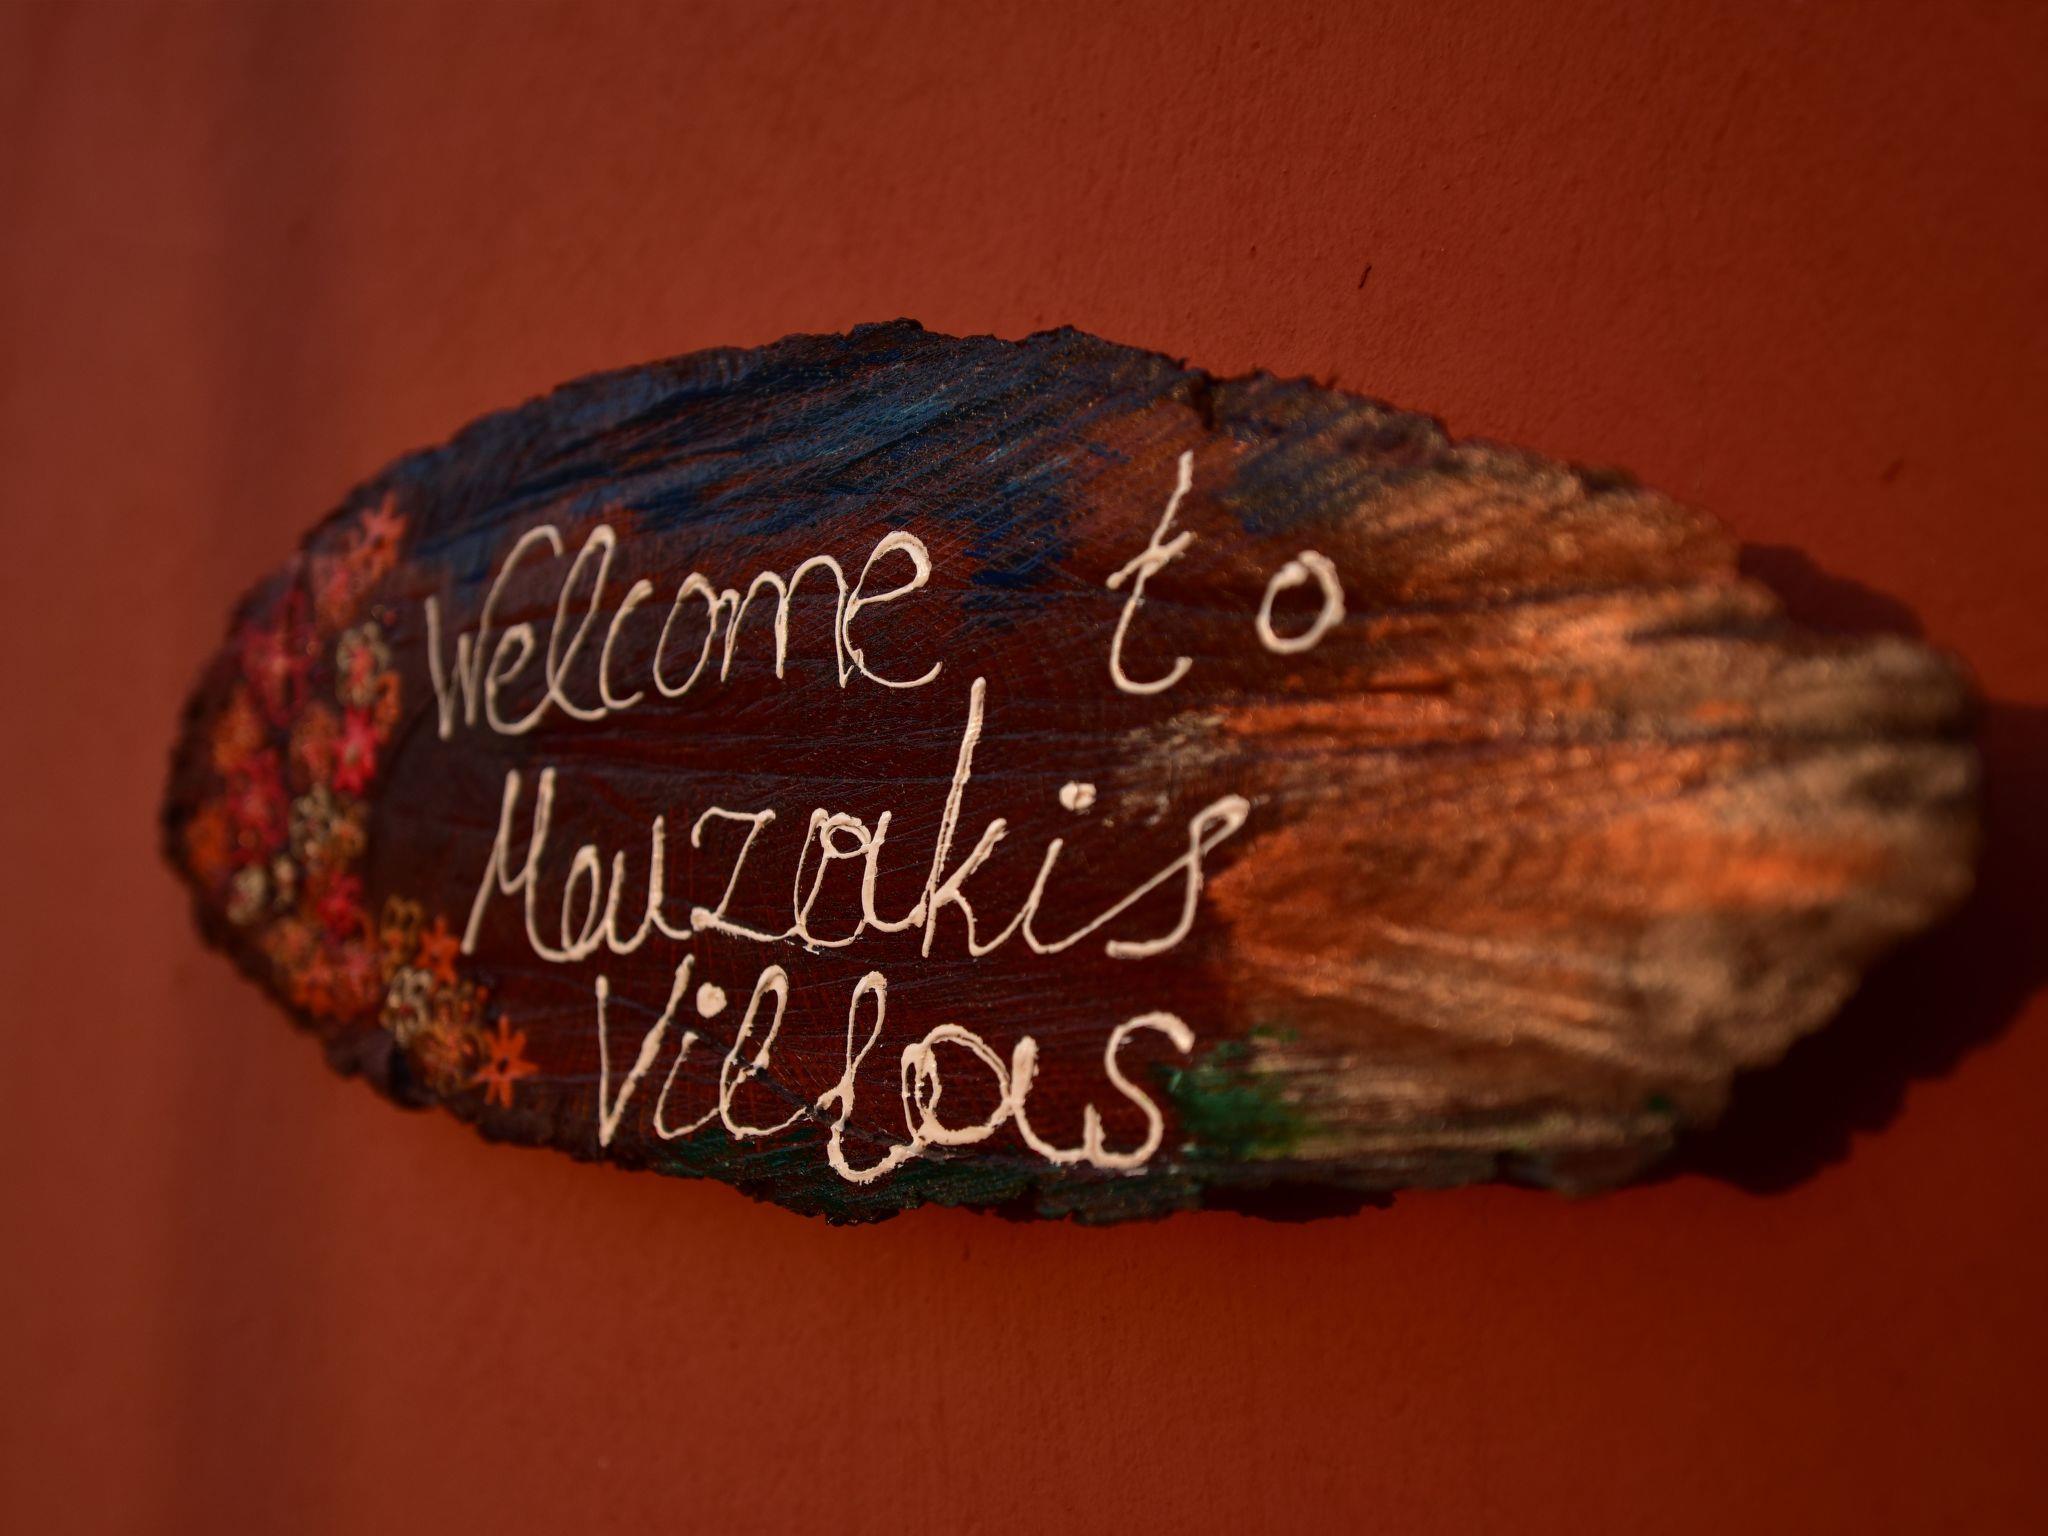 Welcome to
Mouzakis
Villas